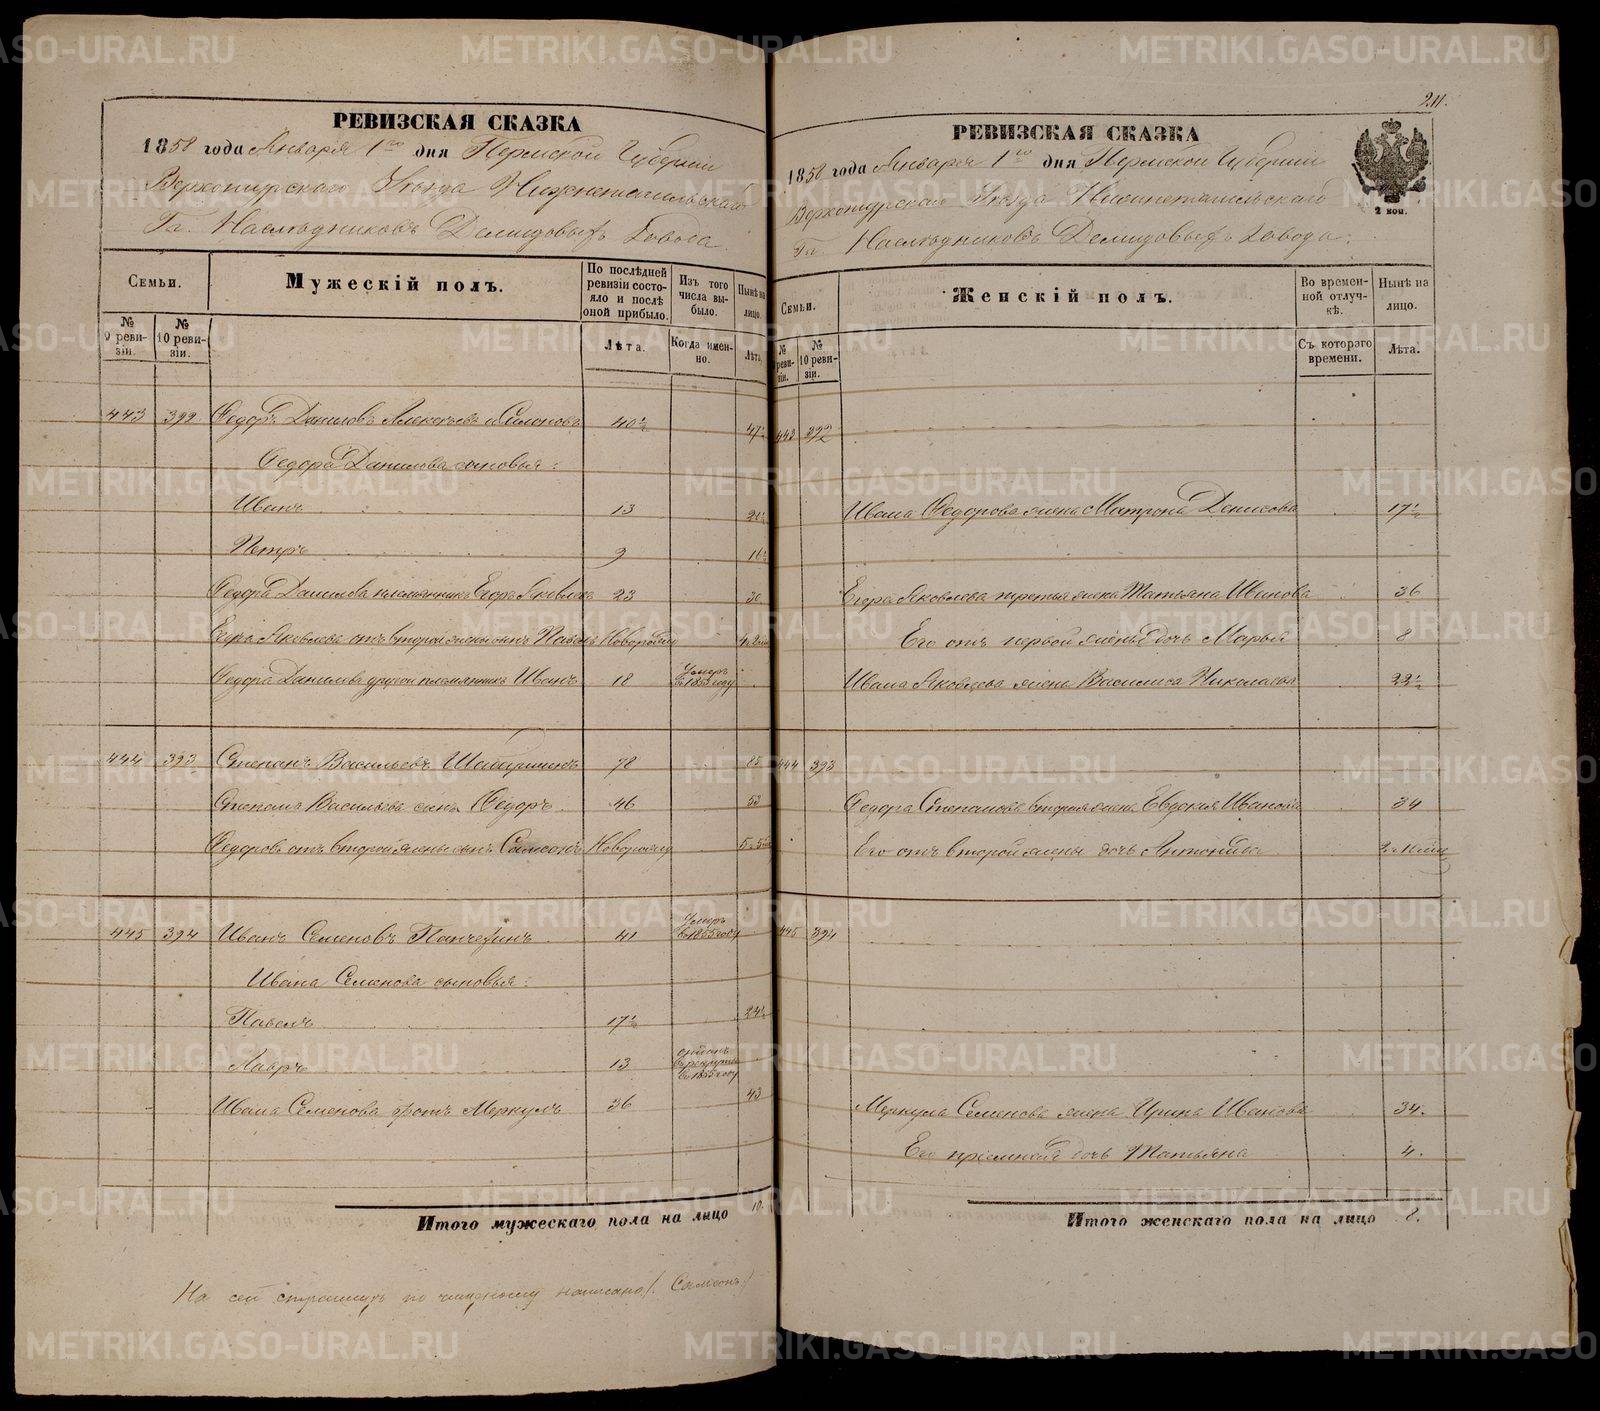 211.
РЕВИЗСКАЯ СКАЗКА
1858 года Января 1го дня Пермской Губернии
Верхотурскаго Уѣзда Нижнетагильскаго
Гг. Наслѣдниковъ Демидовыхъ Завода
Семьи.
Мужескій полъ.
По послѣдней ревизіи состояло и послѣ оной прибыло.
Изъ того числа выбыло.
Нынѣ на лицо.
№ 9 ревизіи.
№ 10 ревизіи.
Лѣта.
Когда именно.
Лѣта.
443 392 Федоръ Даниловъ Алексѣевъ 40½ 47½
Федора Данилова сыновья:
Иванъ 13
Петръ 9 16½
Федора Данилова племянникъ Егоръ Яковлевъ 23 30
Егора Яковлева отъ второй жены сынъ Новорожд
Федора Данилова другой племянникъ Иванъ 18 Умеръ въ 1853 году
444 393 Степанъ Васильевъ Шабаршинъ 78 85
Степана Васильева сынъ Федоръ 46 53
Федоръ отъ второй жены сынъ Самсонъ Новорожд
445 394 Иванъ Семеновъ 41 Умеръ въ 1855 году
Ивана Семенова сыновья:
Павелъ 17½ 24½
Лавръ 13 отданъ въ рекруты въ 1855 году
Ивана Семенова братъ Меркулъ 36 43
Итого мужескаго пола на лицо 10.
На сей страницѣ по чищеному написано /: Самсонъ :/
РЕВИЗСКАЯ СКАЗКА
1858 года Января 1го дня Пермской Губерніи
Верхотурскаго Уѣзда Нижнетагильскаго
Гг. Наслѣдниковъ Демидовыхъ Завода.
2 коп.
Семьи.
Женскій полъ.
Во временной отлучкѣ.
Нынѣ на лицо.
№ 9 ревизіи.
№ 10 ревизіи.
Съ котораго времени.
Лѣта.
443 392
Ивана Федорова жена Матрона Денисова 17½
Егора Яковлева третья жена Татьяна Иванова 36
Его отъ первой жены дочь Марья 8
Ивана Яковлева жена Василиса Николаева 22½
444 393
Федора Степанова вторая жена Евдокия Иванова 34
Его отъ второй жены дочь Антонида
445 394
Меркула Семенова жена Ирина Иванова 34.
Его пріемная дочь Татьяна 4.
Итого женскаго пола на лицо 8.
METRIKI.GASO-URAL.RU